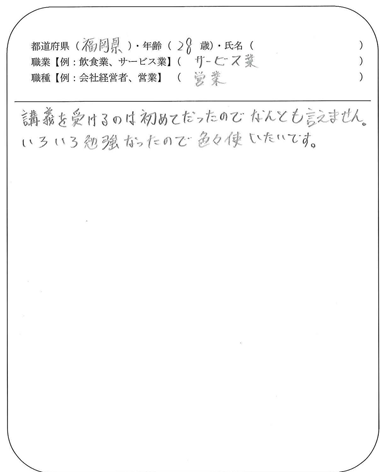 都道府県（福岡県）・年齢（28歳）・氏名（　　　　）
職業【例：飲食業、サービス業】（サービス業）
職種【例：会社経営者、営業】（営業）
講義を受けるのは初めてだったのでなんとも言えません。
いろいろ勉強なったので色々使いたいです。